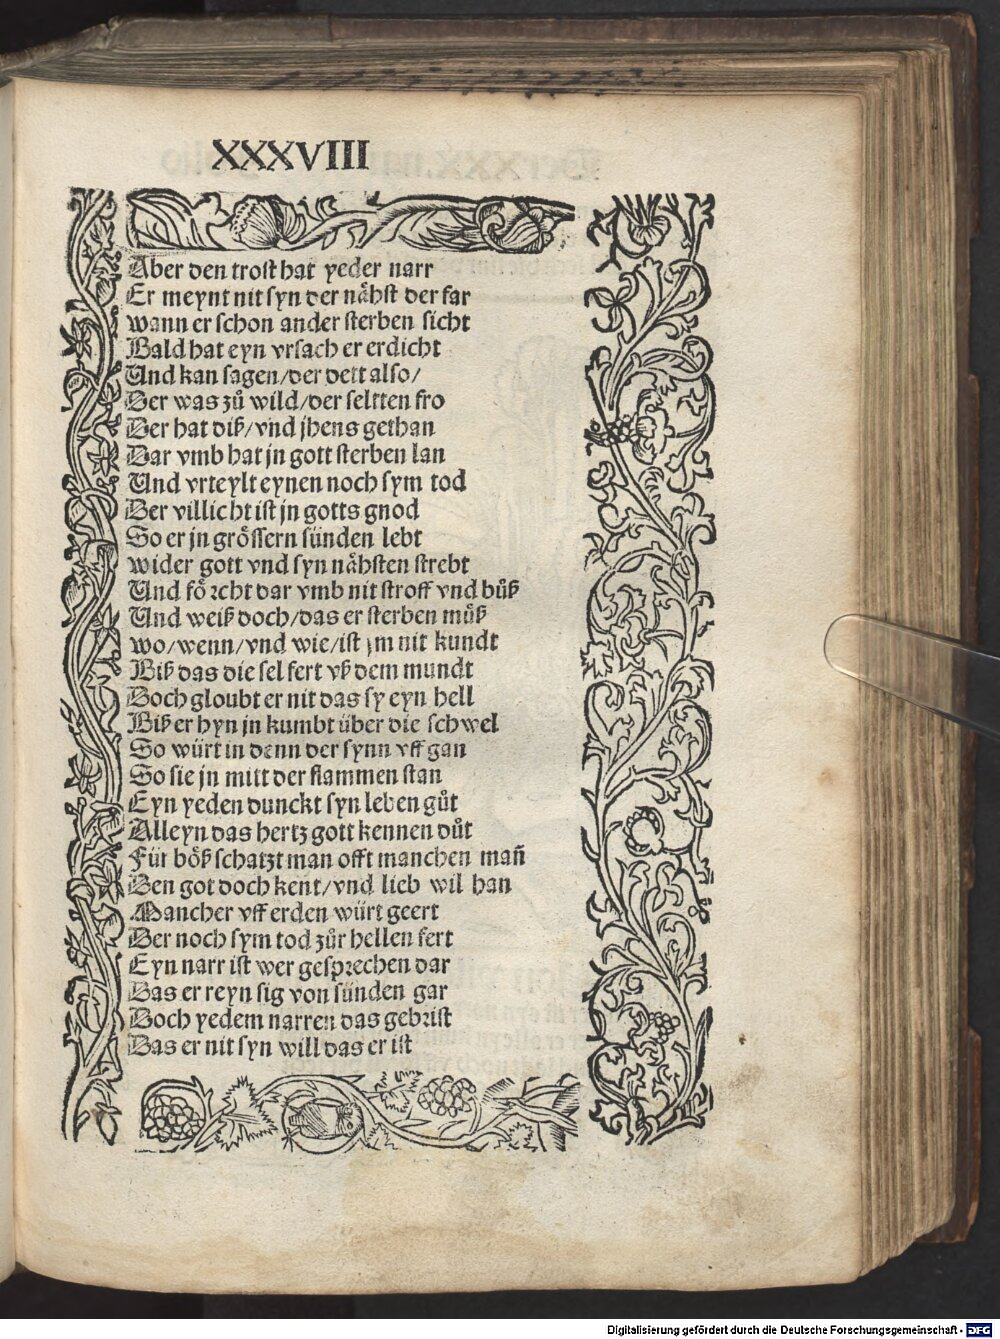 XXXVIII
Aber den trost hat yeder narr
Er meynt nit syn der nåhst der far
wann er schon ander sterben sicht
Bald hat eyn vrsach er erdicht
Und kan sagen/der dett also/
Der was zů wild/der seltten fro
Der hat diß/vnd jhens gethan
Dar vmb hat jn gott sterben lan
Und vrteylt eynen noch sym tod
Der villicht ist jn gotts gnod
So er jn grössern sünden lebt
wider gott vnd syn nåhsten strebt
Und förcht dar vmb nit stroff vnd bůß
Und weiß doch/das er sterben můß
wo/wenn/vnd wie/ist jm nit kundt
Biß das die sel fert vß dem mundt
Doch gloubt er nit das sy eyn hell
Biß er hyn jn kumbt über die schwel
So würt in denn der synn vff gan
So sie jn mitt der flammen stan
Eyn yeden dunckt syn leben gůt
Alleyn das hertz gott kennen důt
Für böß schatzt man offt manchen mañ
Den got doch kent/vnd lieb wil han
Mancher vff erden würt geert
Der noch sym tod zůr hellen fert
Eyn narr ist wer gesprechen dar
Das er reyn sig von sünden gar
Doch yedem narren das gebrist
Das er nit syn will das er ist
Digitalisierung gefördert durch die Deutsche Forschungsgemeinschaft - DFG